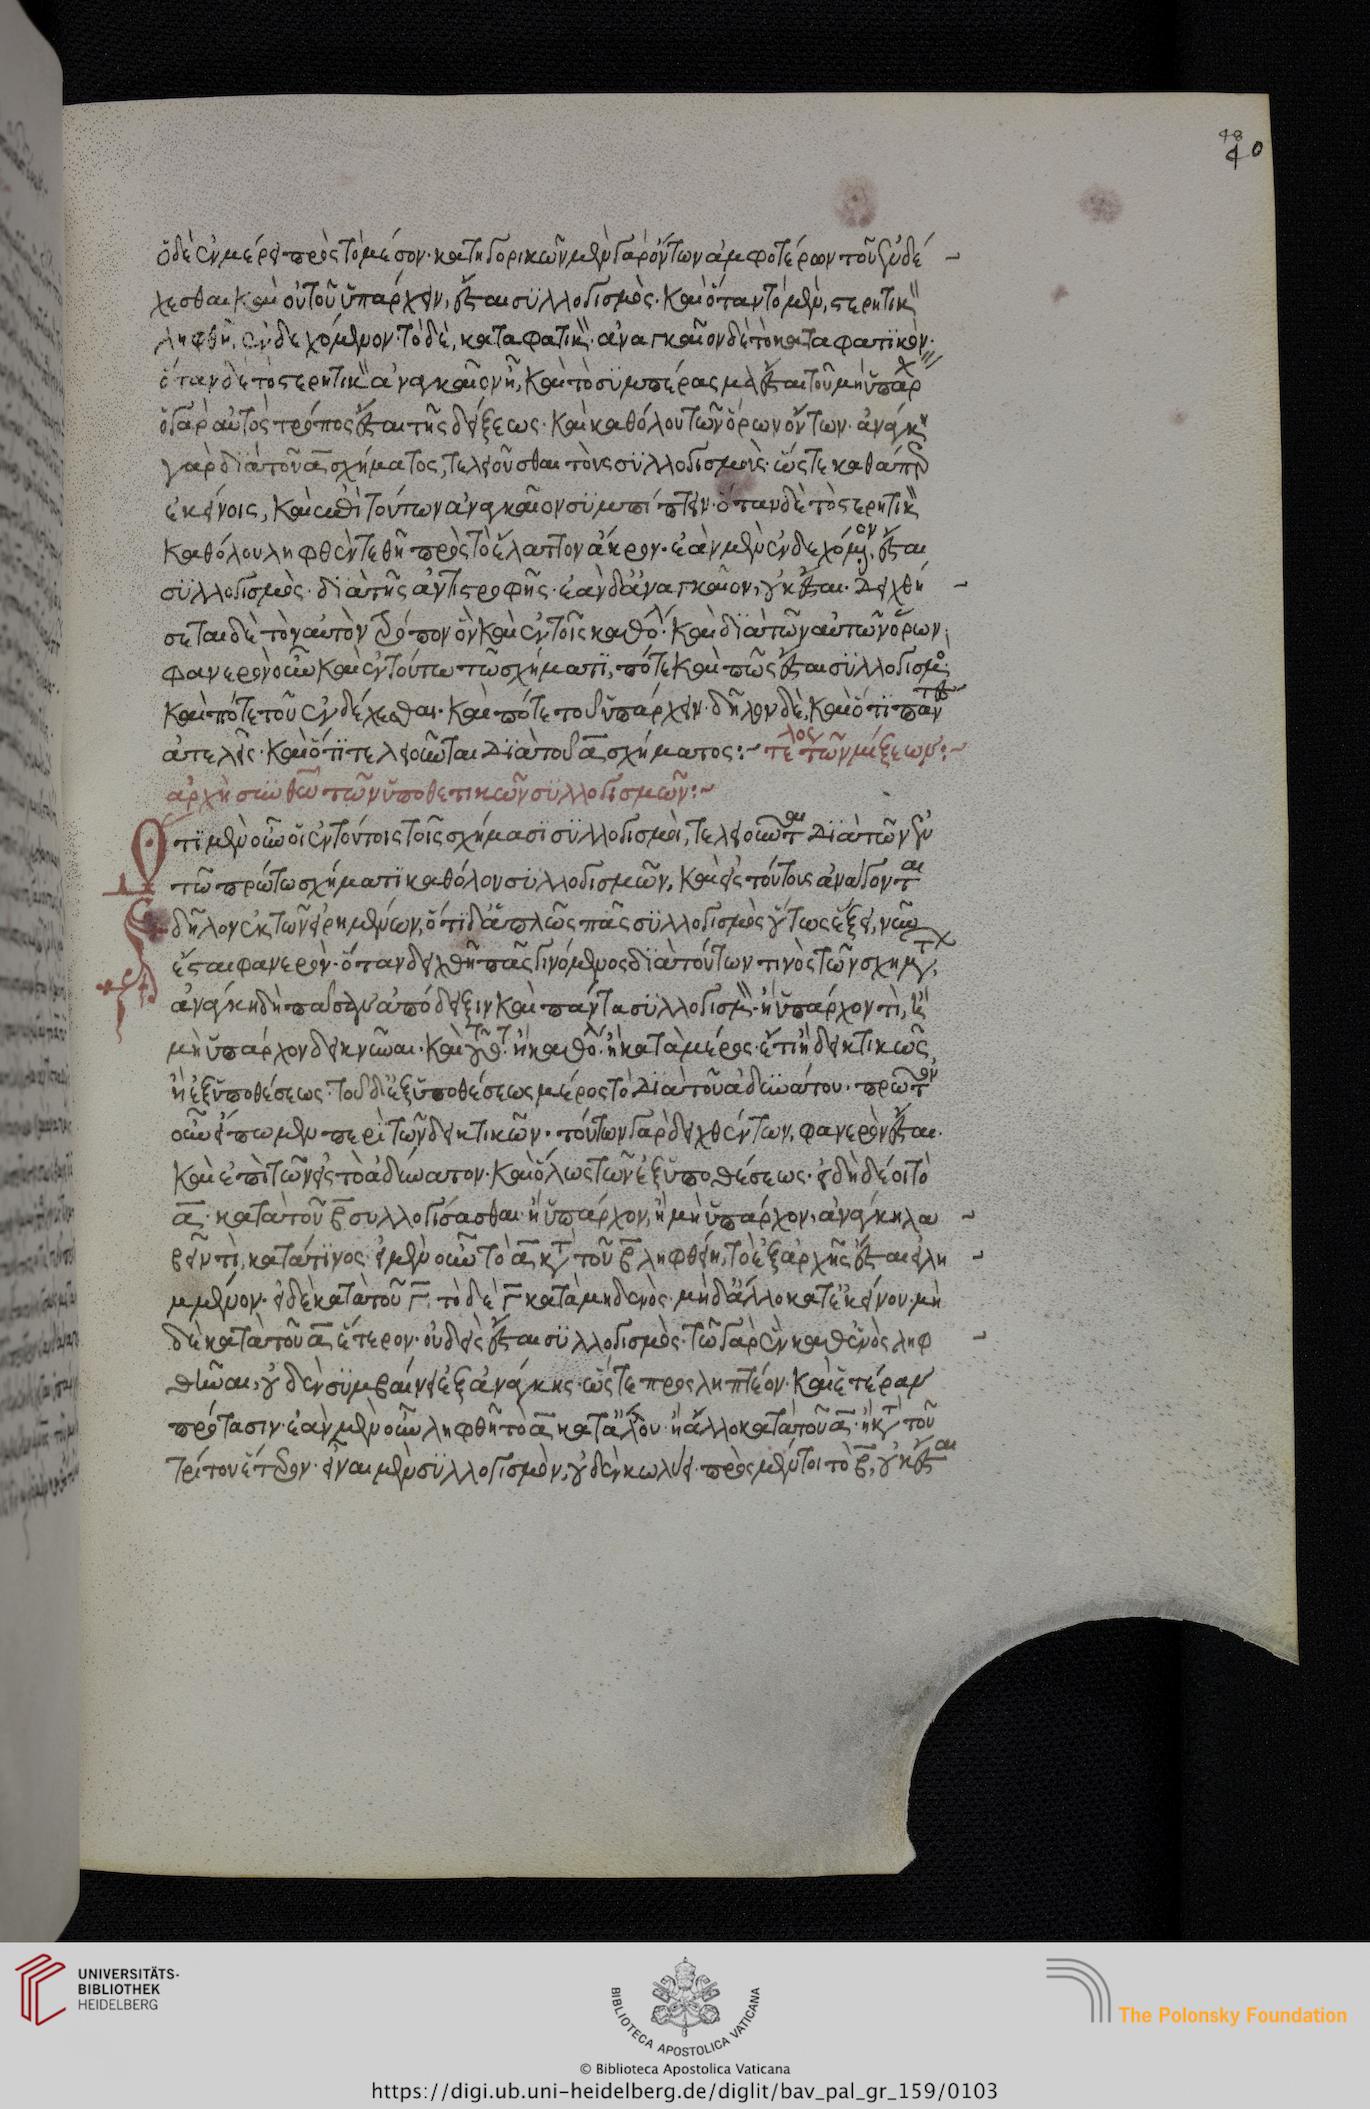 48
40
ὁ δὲ ἐν μέρει πρὸς τὸ μέσον· κατηγορικῶν μὲν γὰρ ὄντων ἀμφοτέρων τοῦ ἐνδέ
χεσθαι καὶ οὐ τοῦ ὑπάρχειν, ἔσται συλλογισμὸς· καὶ ὅταν τὸ μὲν, στερητικ
ληφθῆ, ἐνδεχόμενον· τὸ δὲ, καταφατικ· ἀναγκαῖον δὲ τὸ καταφατικὸν·
ὅταν δὲ τὸ στερητικ ἀναγκαῖον ἦ, καὶ τὸ συμπέρασμα ἔσται τοῦ μὴ ὑπάρχ
ὁ γὰρ αὐτὸς τρόπος ἔσται τῆς δείξεως· καὶ καθόλου τῶν ὅρων ὄντων· ἀνάγκ
γὰρ διὰ τοῦ α σχήματος, τελειοῦσθαι τοὺς συλλογισμοὺς· ὥστε καθάπερ
ἐκείνοις, καὶ ἐπὶ τούτων ἀναγκαῖον συμπίπτειν· ὅταν δὲ τὸ στερητικ
καθόλου ληφθὲν τεθῆ πρὸς τὸ ἔλαττον ἄκρον· ἐὰν μὲν ἐνδεχόμενον, ἔσται
συλλογισμὸς· διὰ τῆς ἀντιστροφῆς· ἐὰν δ' ἀναγκαῖον, οὐκ ἔσται· δειχθή
σεται δὲ τὸν αὐτὸν τρόπον ὃν καὶ ἐν τοῖς καθόλ· καὶ διὰ τῶν αὐτῶν ὅρων·
φανερὸν οὖν καὶ ἐν τούτω τῶ σχήματι, πότε καὶ πῶς ἔσται συλλογισμο
καὶ πότε τοῦ ἐνδέχεσθαι· καὶ πότε τοῦ ὑπάρχειν· δῆλον δὲ, καὶ ὅτι πάντες
ἀτελεῖς· καὶ ὅτι τελειοῦνται διὰ τοῦ α σχήματος:~ τέλος τῶν μίξεων:~
ἀρχὴ σὺν θεῶ τῶν ὑποθετικῶν συλλογισμῶν:~
Ὅτι μὲν οὖν οἱ ἐν τούτοις τοῖς σχήμασι συλλογισμοὶ, τελειοῦνται διὰ τῶν ἐν
τῶ πρώτω σχήματι καθόλου συλλογισμῶν, καὶ εἰς τούτους ἀνάγονται
δῆλον ἐκ τῶν εἰρημένων, ὅτι δ' ἁπλῶς πᾶς συλλογισμὸς οὕτως ἕξει, νῦν
ἔσται φανερὸν· ὅταν δειχθῆ πᾶς γινόμενος διὰ τούτων τινὸς τῶν σχημτ,
ἀνάγκη δὴ πᾶσαν ἀπόδειξιν καὶ πάντα συλλογισμ· ἢ ὑπάρχον τὶ, ἢ
μὴ ὑπάρχον δεικνύναι· καὶ τοῦτ· ἢ καθόλ· ἢ κατὰ μέρος· ἔτι ἢ δεικτικῶς
ἢ ἐξ ὑποθέσεως· τοῦ δ' ἐξ ὑποθέσεως μέρος τὸ διὰ τοῦ ἀδυνάτου· πρῶτον
οὖν εἴπωμεν περὶ τῶν δεικτικῶν· τούτων γὰρ δειχθέντων, φανερὸν ἔσται·
καὶ ἐπὶ τῶν εἰς τὸ ἀδύνατον· καὶ ὅλως τῶν ἐξ ὑποθέσεως· εἰ δὴ δέοι τὸ
α· κατὰ τοῦ β συλλογίσασθαι ἢ ὑπάρχον, ἢ μὴ ὑπάρχον, ἀνάγκη λα
βεῖν τὶ, κατά τινος· εἰ μὲν οὖν τὸ α κτ τοῦ β ληφθείη, τὸ ἐξ ἀρχῆς ἔσται εἰλη
μμένον· εἰ δὲ κατὰ τοῦ Γ, τὸ δὲ Γ κατὰ μηδενὸς· μηδ' ἄλλο κατ' ἐκείνου· μη
δὲ κατὰ τοῦ α ἕτερον· οὐδεὶς ἔσται συλλογισμὸς· τῶ γὰρ ἓν καθ' ἑνὸς ληφ
θῆναι, οὐδὲν συμβαίνει ἐξ ἀνάγκης· ὥστε προσληπτέον· καὶ ἑτέραν
πρότασιν· ἐὰν μὲν οὖν ληφθῆ τὸ α κατὰ ἄλλου· ἢ ἄλλο κατὰ τοῦ α· ἢ κτ τοῦ
τρίτου ἕτερον· εἶναι μὲν συλλογισμὸν, οὐδὲν κωλύει· πρὸς μέντοι τὸ β, οὐκ ἔσται
UNIVERSITÄTS-
BIBLIOTHEK
HEIDELBERG
BIBLIOTECA APOSTOLICA VATICANA
The Polonsky Foundation
© Biblioteca Apostolica Vaticana
https://digi.ub.uni-heidelberg.de/diglit/bav_pal_gr_159/0103